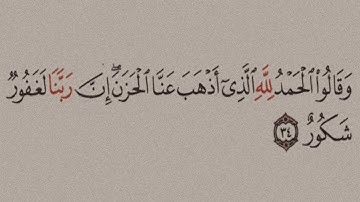 وَقَالُوا۟ ٱلْحَمْدُ لِلَّهِ ٱلَّذِىٓ أَذْهَبَ عَنَّا ٱلْحَزَنَ ۖ إِنَّ رَبَّنَا لَغَفُورٌۭ
شَكُورٌ ٣٤